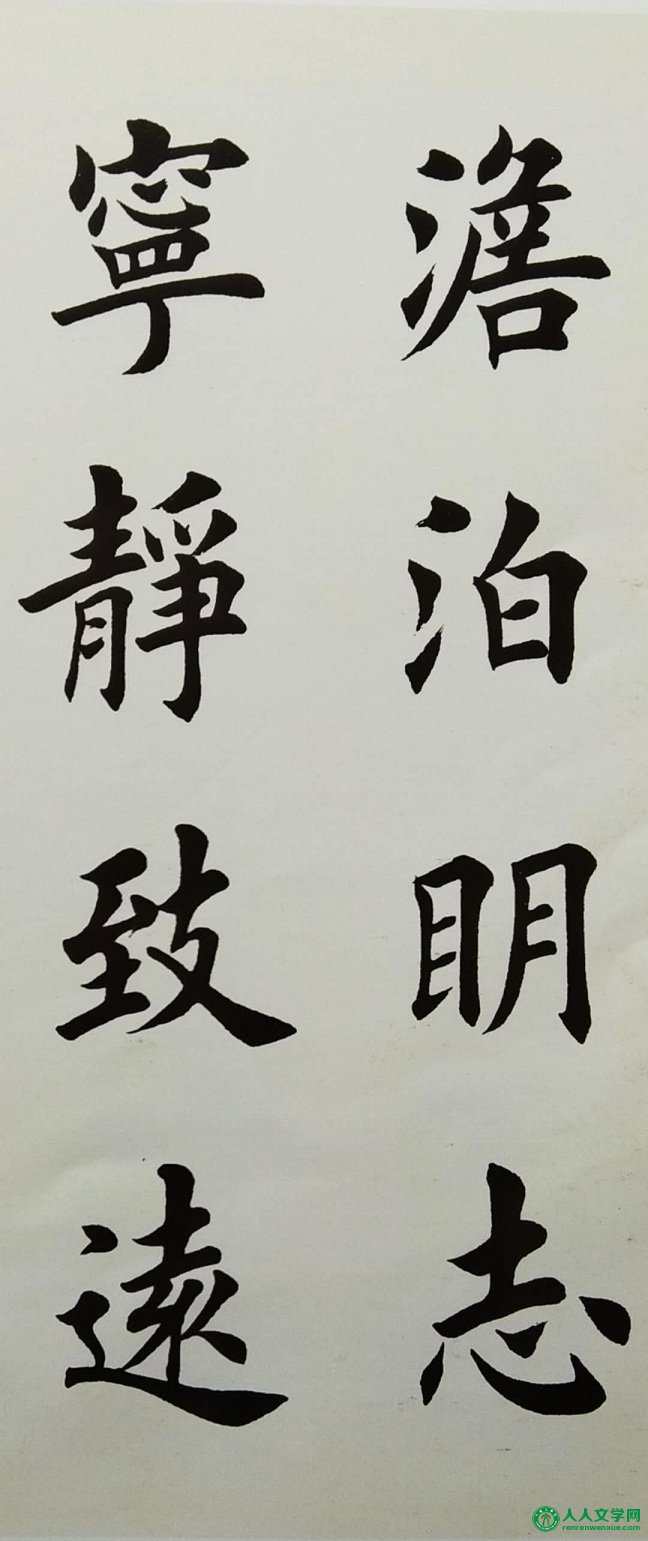 澹泊明志
寧靜致遠
人人文学网
renrenwenxue.com